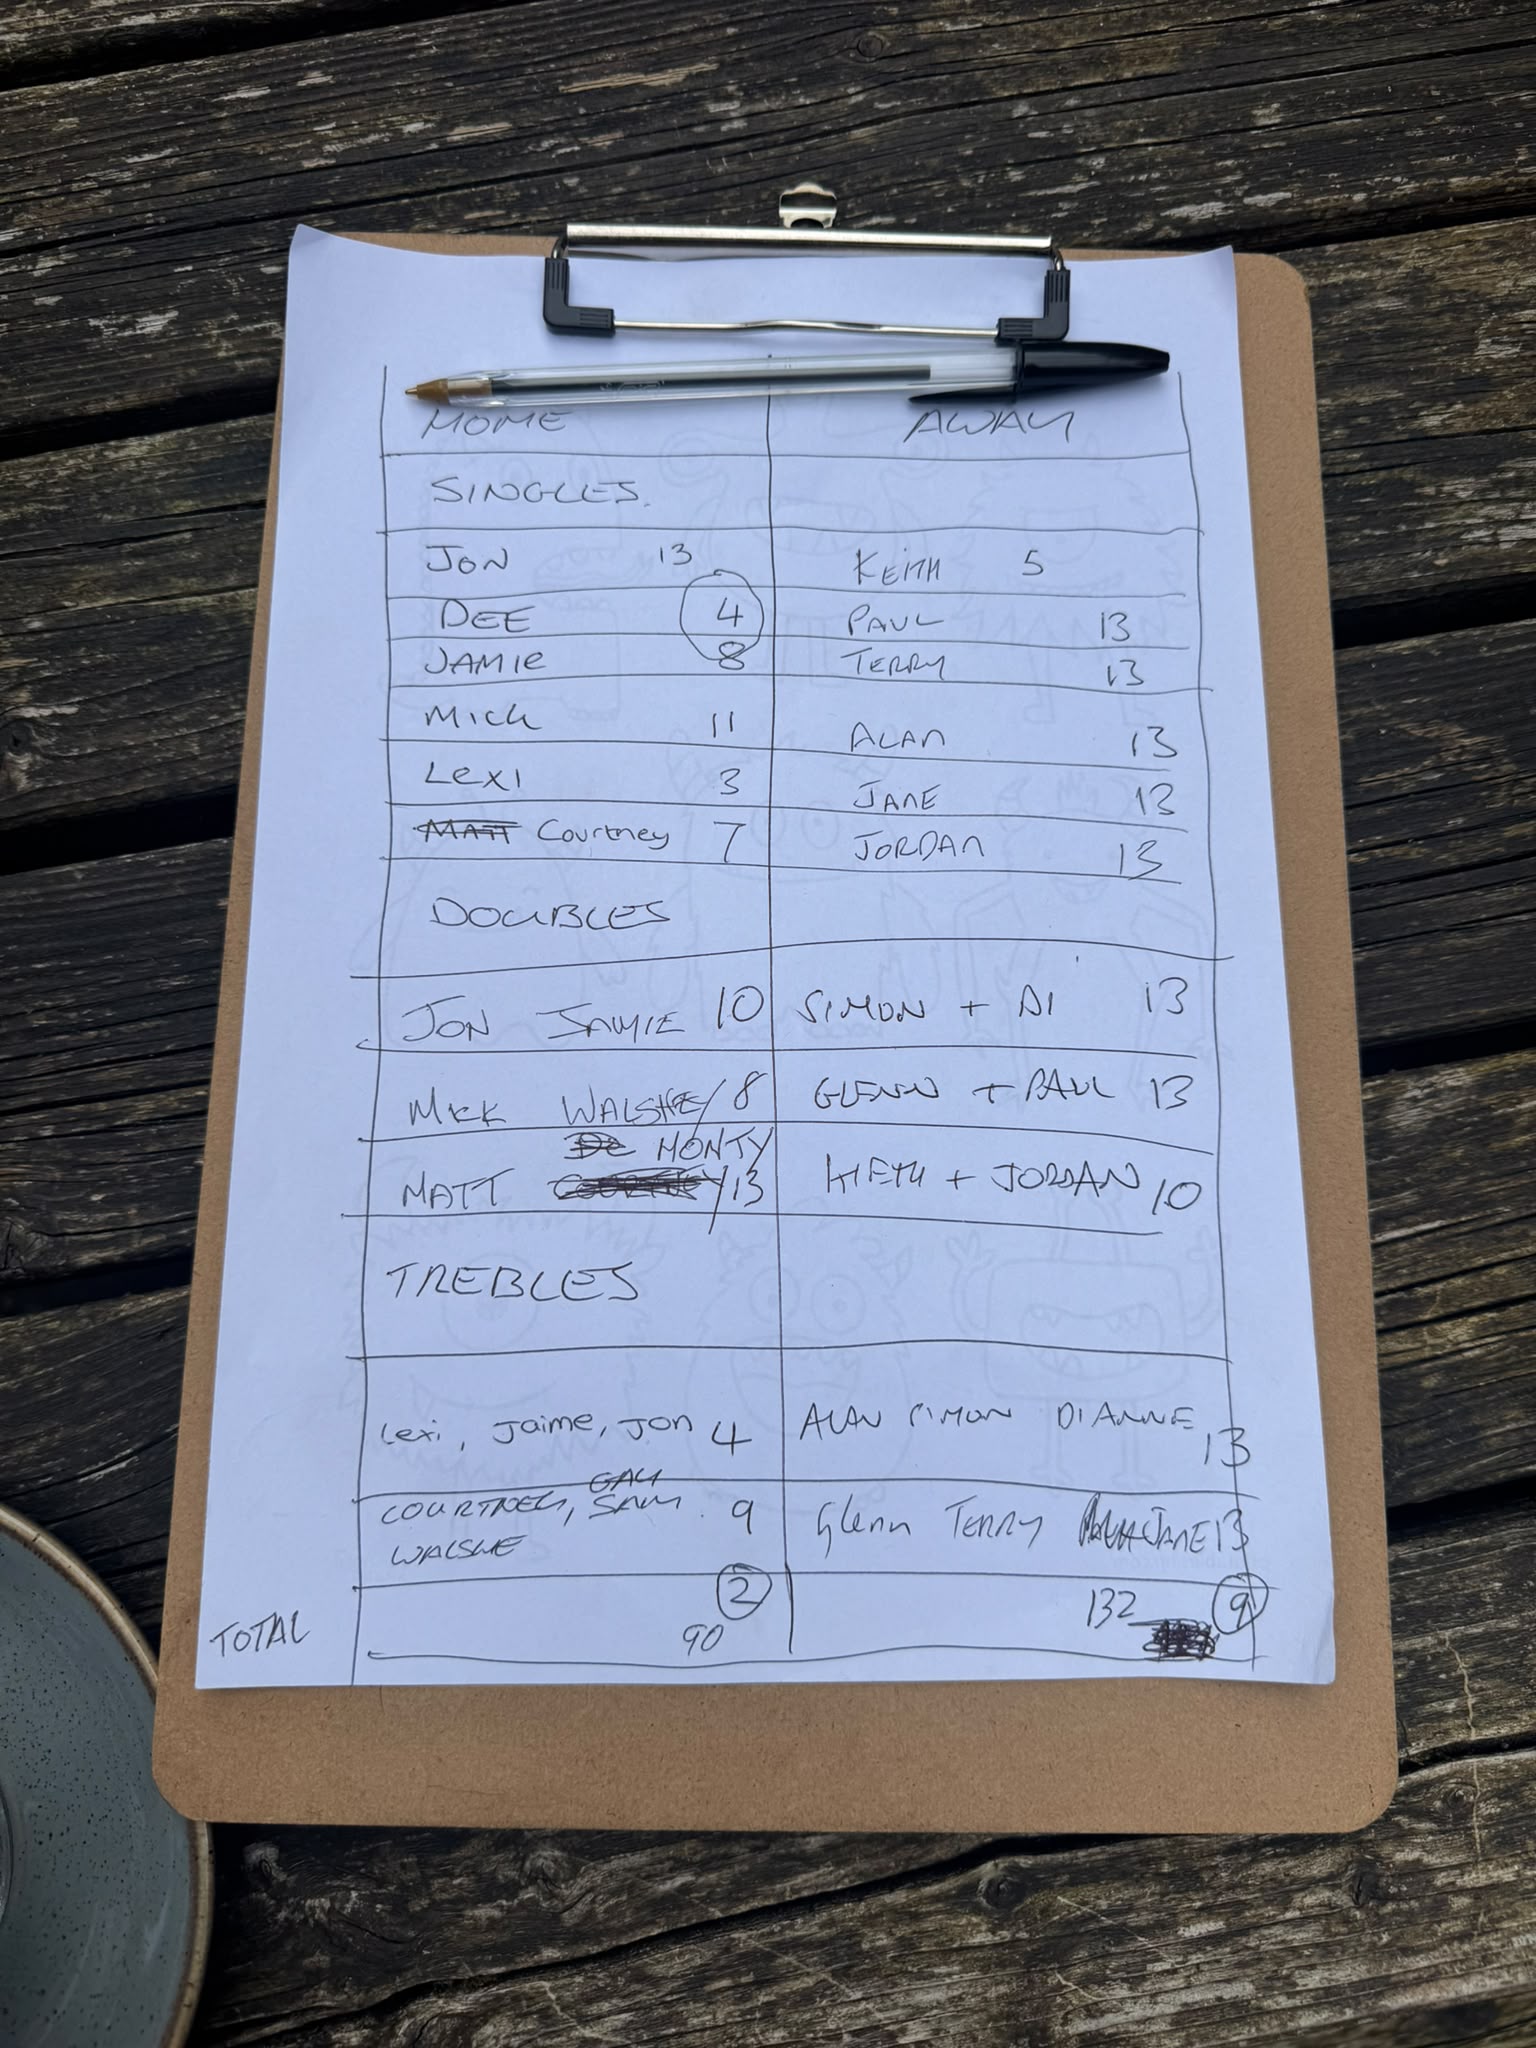 HOME AWAY
SINGLES.
JON 13 KEITH 5
DEE 4 PAUL 13
JAMIE 8 TERRY 13
MICK 11 ALAN 13
LEXI 3 JANE 13
MATT Courtney 7 JORDAN 13
DOUBLES
JON JAMIE 10 SIMON + DI 13
MICK WALSHE/ 8 GLENN + PAUL 13
De MONTY
MATT COURTNEY /13 KIETH + JORDAN 10
TREBLES
Lexi, Jaime, Jon 4 ALAN SIMON DIANNE 13
GAY
COURTNEY, SAM 9 Glenn TERRY JANE 13
WALSHE
2 132 9
TOTAL 90